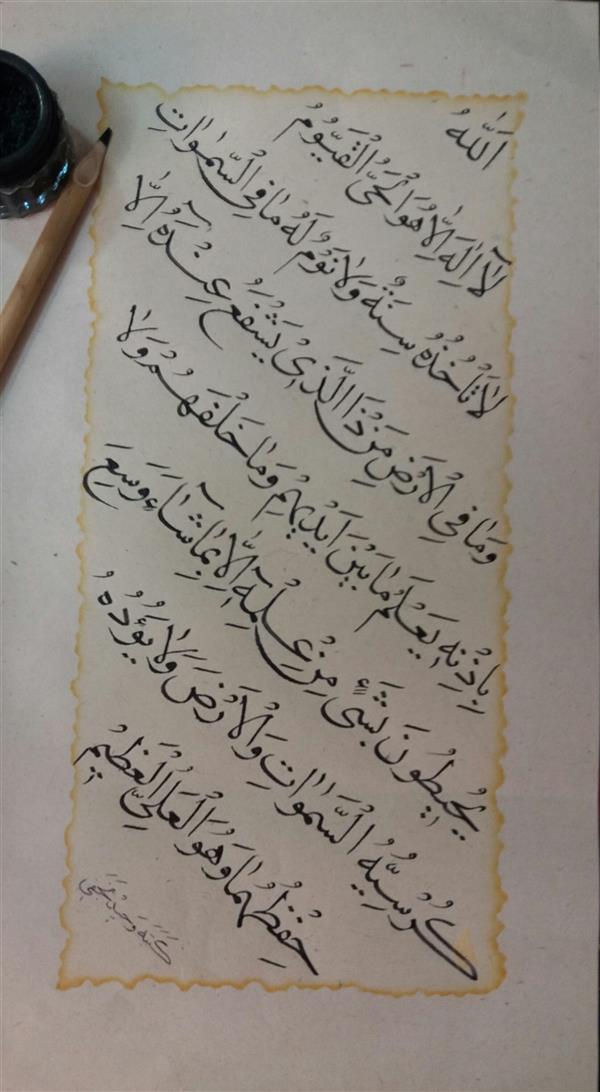 اَللّٰهُ
لَآ اِلٰهَ اِلَّا هُوَ الْحَىُّ الْقَيُّومُ
لَا تَأْخُذُهُ سِنَةٌ وَلَا نَوْمٌ لَهُ مَا فِى السَّمٰوَاتِ
وَمَا فِى الْاَرْضِ مَنْ ذَا الَّذِى يَشْفَعُ عِنْدَهُٓ اِلَّا
بِاِذْنِهِ يَعْلَمُ مَا بَيْنَ اَيْدِيهِمْ وَمَا خَلْفَهُمْ وَلَا
يُحِيطُونَ بِشَىْءٍ مِنْ عِلْمِهِٓ اِلَّا بِمَا شَآءَ وَسِعَ
كُرْسِيُّهُ السَّمٰوَاتِ وَالْاَرْضَ وَلَا يَؤُدُهُ
حِفْظُهُمَا وَهُوَ الْعَلِىُّ الْعَظِيمُ
كَتَبَهُ